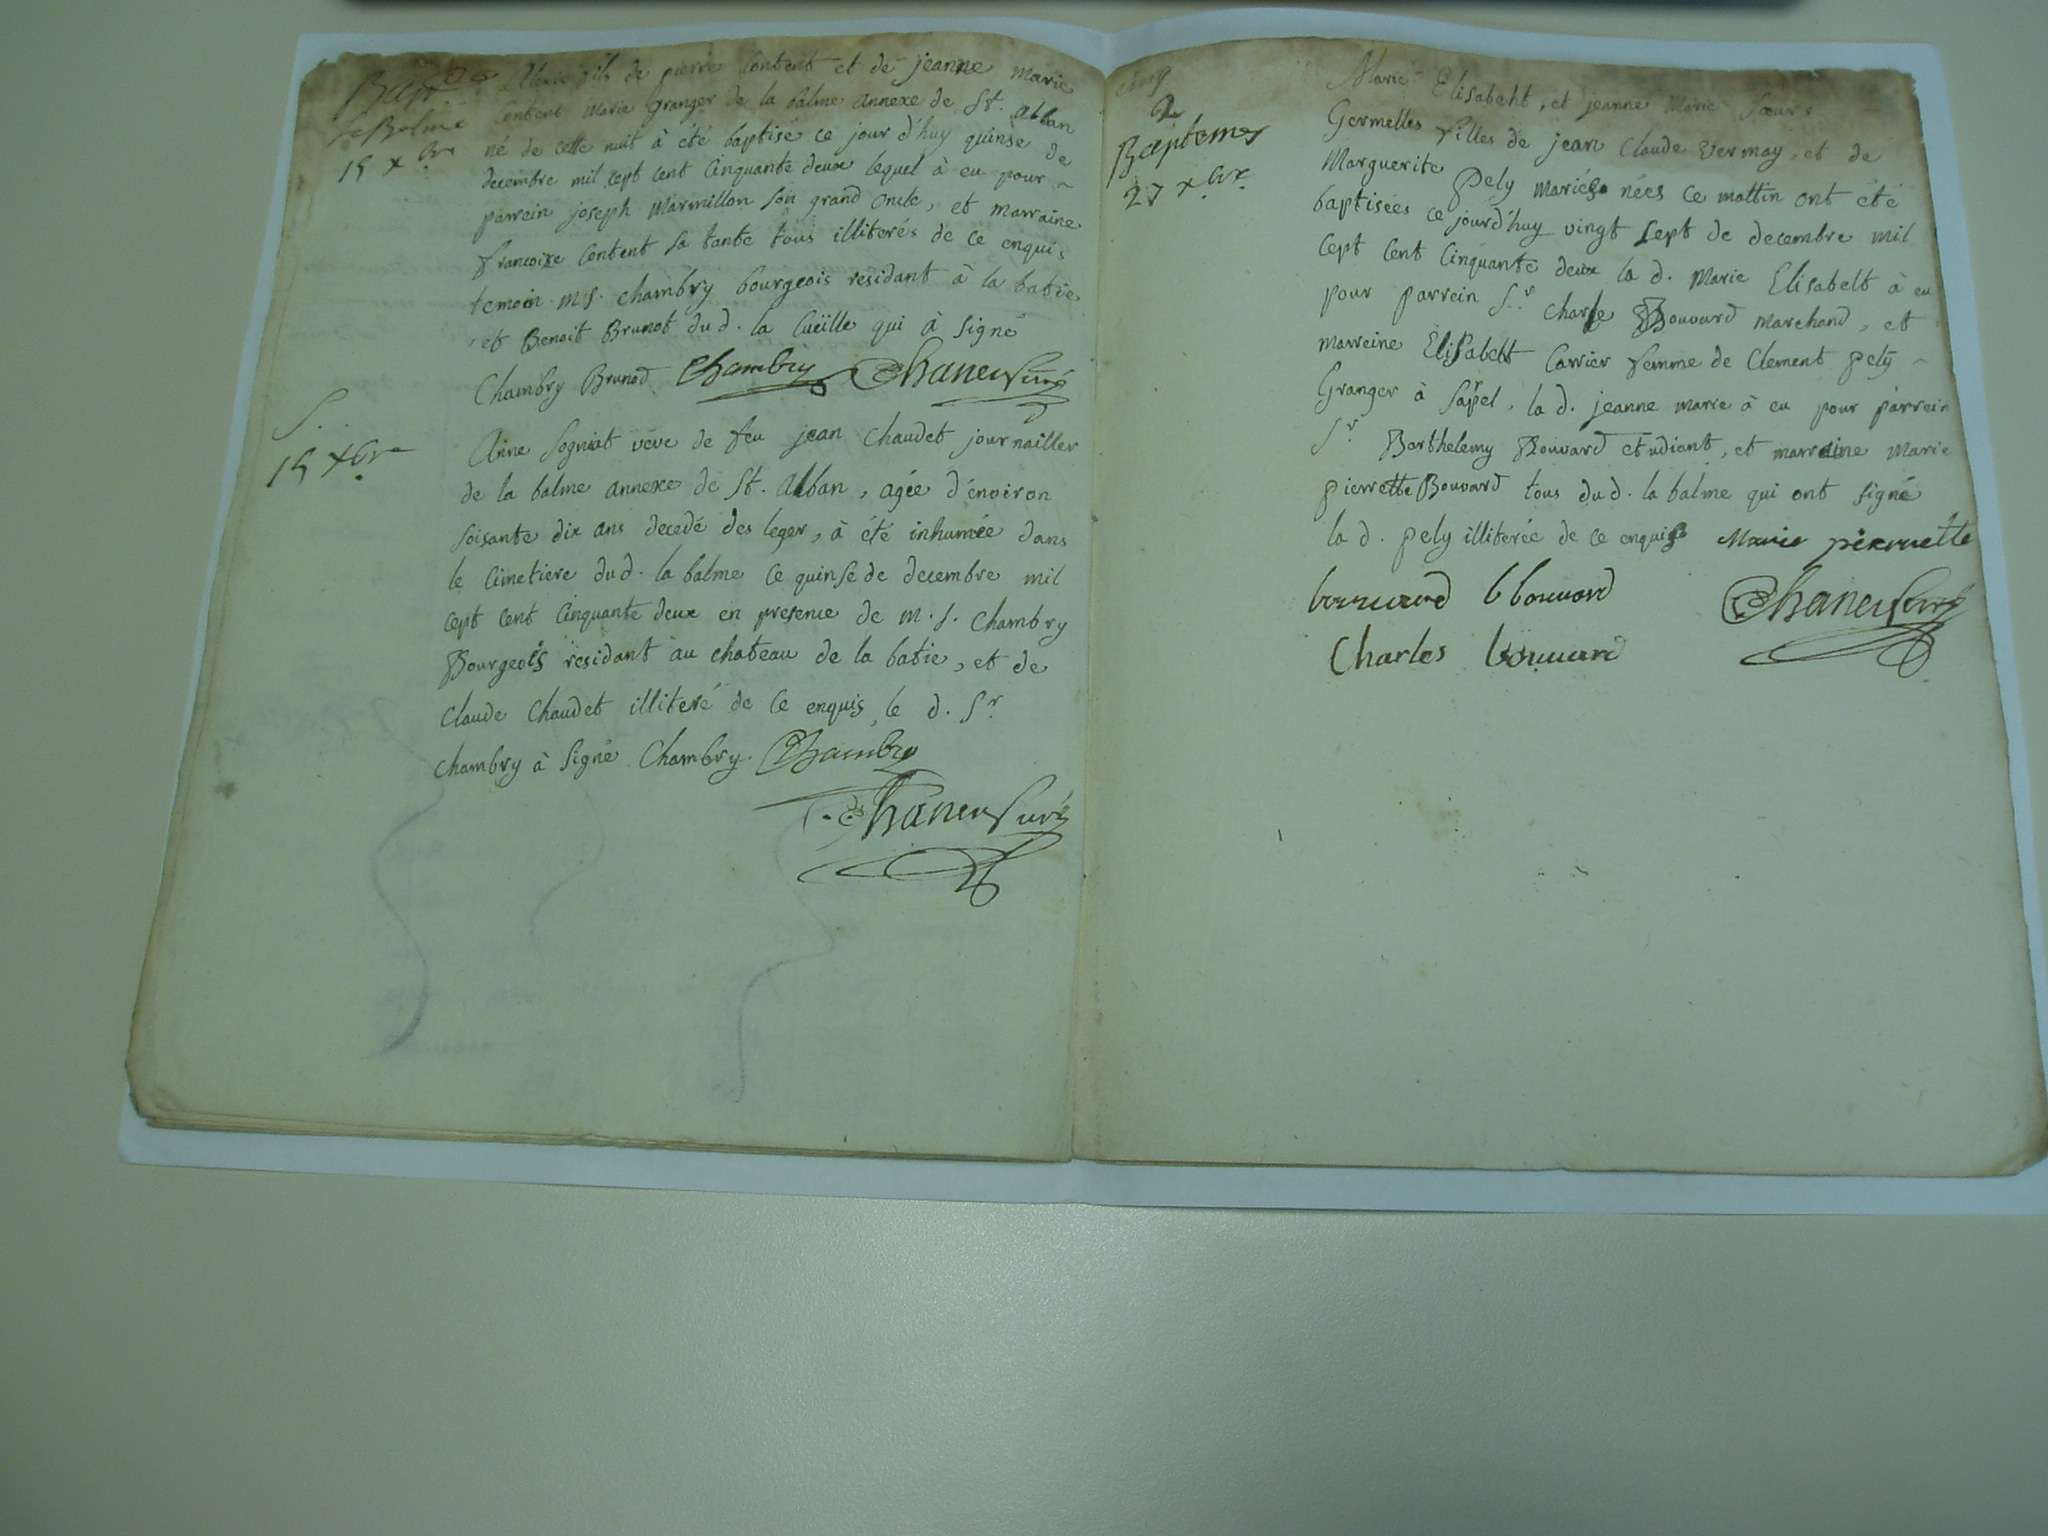 Bapt
La Balme
15 xbre
Alexis fils de pierre Content et de jeanne Marie
Content Marie Granger de la balme annexe de St. alban
né de cette nuit à été baptisé ce jour d'huy quinse de
decembre mil cept cent Cinquante deux lequel à eu pour
parrein joseph Marmillon son grand oncle, et marraine
francoise Content sa tante tous illiterés de ce enquis
temoin m.s. chambry bourgeois residant à la batie
et Benoit Brunod du d. la Cueille qui à signé
Chambry Brunod Chambry Chaneu Curé
S.
15 xbre
Anne Segniat veve de feu jean Chaudet journailler
de la balme annexe de St. Alban, agée d'environ
soisante dix ans decedé des leger, à été inhumée dans
le Cimetiere du d. la balme ce quinse de decembre mil
cept cent Cinquante deux en presence de m.s. Chambry
Bourgeois residant au chateau de la batie, et de
Claude Chaudet illiteré de ce enquis, le d. Sr
chambry à signé Chambry. Chambry
Chaneu Curé
2
Baptemes
27 xbre
Marie Elisabeht, et jeanne Marie sœurs
Germelles filles de jean Claude Vermay, et de
Marguerite Pely mariés nées ce mattin ont été
baptisées ce jourd'huy vingt sept de decembre mil
cept cent Cinquante deux la d. Marie Elisabelt à eu
pour parrein Sr. Charle Bouvard marchand, et
marreine Elisabelt Carrier femme de Clement pely
Granger à Sapel, la d. jeanne marie à eu pour parrein
Sr. Barthelemy Bouvard etudiant, et marraine Marie
pierrette Bouvard tous du d. la balme qui ont signé
la d. pely illiterée de ce enquise Marie pierruette
bouvard B bouvard Chaneu Curé
Charles bouvard